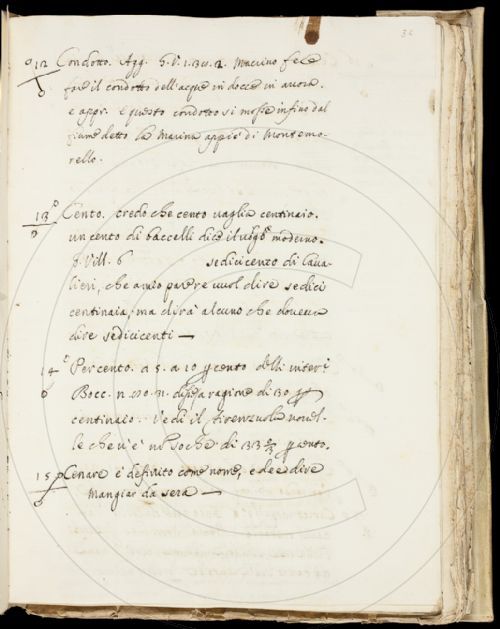 32
012 Condotto. Agg. G. V. 1. 38. 2. Macrino fece
fare il condotto dell'acque in docce in arcora.
e appr. e questo condotto si mosse infino dal
fiume detto la Marina appiè di Montemo-
rello.
13 Cento. credo che cento vaglia centinaio.
un cento di baccelli dice il volgo moderno.
G. Vill. 6 sedicicento di Cava-
lieri, che a mio parere vuol dire sedici
centinaia, ma dirà alcuno che doveva
dire sedicicenti —
14 Per cento. a 5. a 10 per cento delli interi
Bocc. n. a ragione di 30 per
centinaio. Vedi il firenzuola novel-
le che v'è di 33 per cento.
15 Cenare è definito come nome, e dee dire
mangiar da sera —